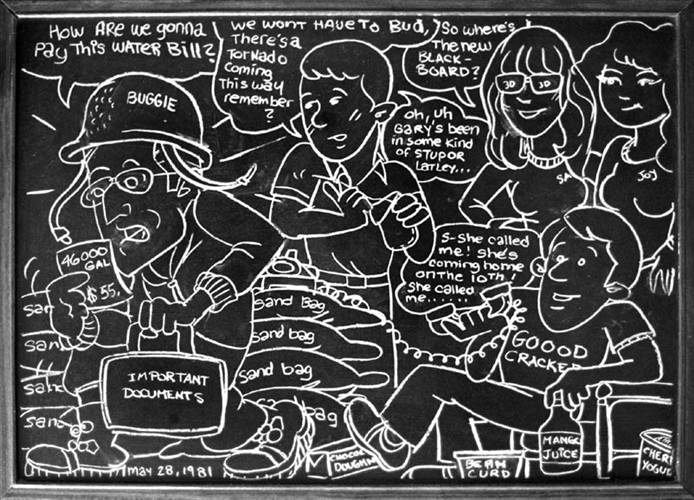 How ARe we gonna
Pay This WATER Bill?
we wont HAVE TO Bud,
There's a
TorNado
Coming
This way
remember
?
So where's
The new
BLACK-
BOARD?
oh, uh
GARy's been
in some kind
of STUPOR
LaTLey...
BUGGIE
3D 3D
SA
JOY
S-She called
me! She's
coming home
on the 10TH!
She called
me......
46000
GAL
$55.
GOOOD
CRACKE
sand Bag
sand bag
sand bag
bag
san
san
san
sand
IMPORTANT
DOCUMENTS
MANGO
JUICE
CHOCO
DOUGHN
BEAN
CURD
CHERI
YOGUR
may 28, 1981